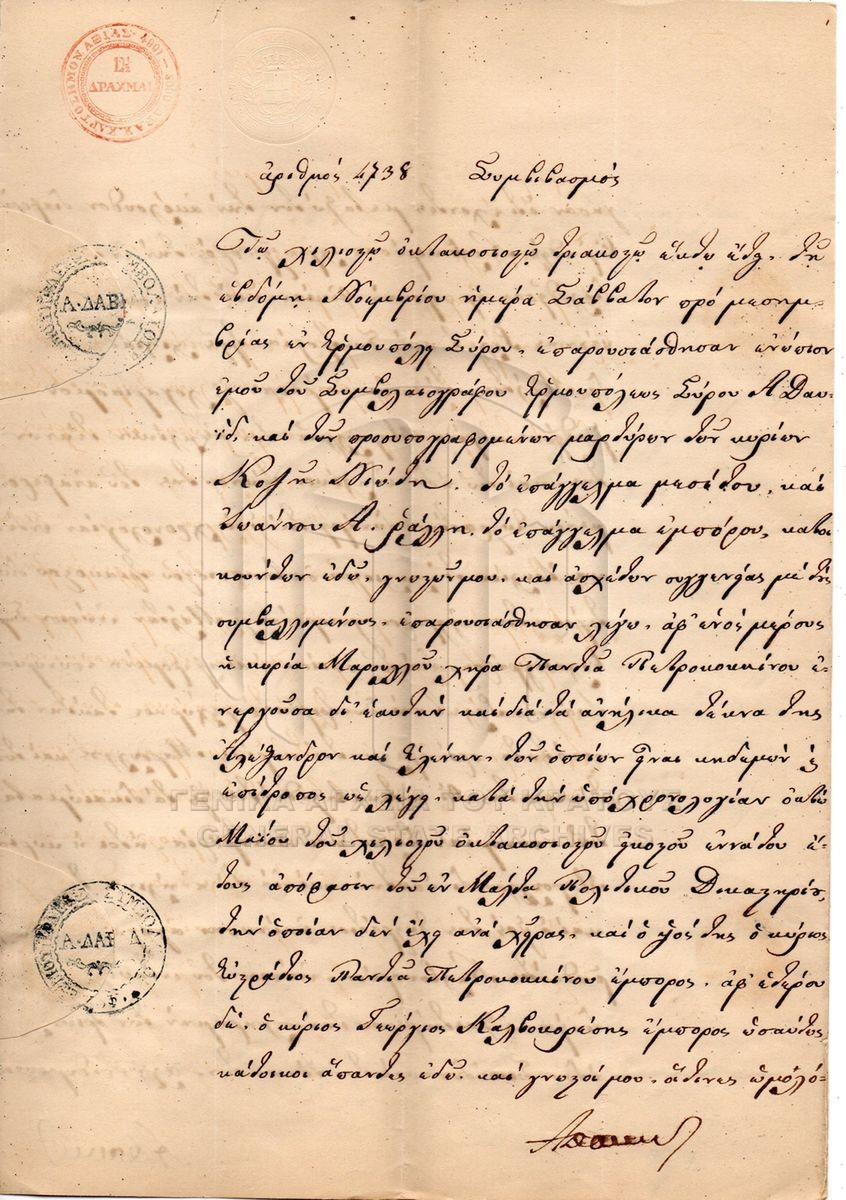 ΔΡΑΧΜΑΙ
ἀριθμός 4738 Συμβιβασμός
Τῷ χιλιοςῷ ὀκτακοσιοςῷ τριακοςῷ ἕκτῳ ἔτει, τῇ
ἑβδόμῃ Νοεμβρίου ἡμέρᾳ Σάββατον πρό μεσημ-
βρίας ἐν Ἑρμουπόλῃ Σύρου, ἐπαρουσιάσθησαν ἐνώπιον
ἐμοῦ τοῦ Συμβολαιογράφου Ἑρμουπόλεως Σύρου Α Δαυ-
ίδ, καί τῶν προσυπογραφομένων μαρτύρων τῶν κυρίων
Κοζῆ Νιώτη, τό ἐπάγγελμα μεσίτου, καί
Ἰωάννου Α. Ράλλη, τό ἐπάγγελμα ἐμπόρου, κατοι
κούντων ἐδῶ, γνωςῶν μου, καί ἀσχέτων συγγενείας μέ τούς
συμβαλλομένους, ἐπαρουσιάσθησαν λέγω, ἀφ' ἑνός μέρους
ἡ κυρία Μαρουλλοῦ χήρα Παντιᾶ Πετροκοκκίνου ἐ-
νεργοῦσα δι' ἑαυτήν καί διά τά ἀνήλικα τέκνα της
Ἀλέξανδρον καί Ἑλένην, τῶν ὁποίων εἶναι κηδεμών ἤ
ἐπίτροπος ὡς λέγει, κατά τήν ὑπό χρονολογίαν ὀκτώ
Μαΐου τοῦ χιλιοςοῦ ὀκτακοσιοςοῦ εἰκοςοῦ ἐννάτου ἔ-
τους ἀπόφασιν τοῦ ἐν Μάλτᾳ Πολιτικοῦ Δικαςηρίου,
τήν ὁποίαν δέν ἔχει ἀνά χεῖρας, καί ὁ υἱός της ὁ κύριος
Εὐςράτιος Παντιᾶ Πετροκοκκίνου ἔμπορος, ἀφ' ἑτέρου
δέ, ὁ κύριος Γεώργιος Καλβοκορέσης ἔμπορος ὡσαύτως
κάτοικοι ἅπαντες ἐδῶ, καί γνωςοί μου, οἵτινες ὡμολό-
Α. ΔΑΒ
Α. ΔΑΒ Δ
ΓΕΝΙΚΑ ΑΡΧΕΙΑ ΤΟΥ ΚΡΑΤΟΥΣ
GENERAL STATE ARCHIVES